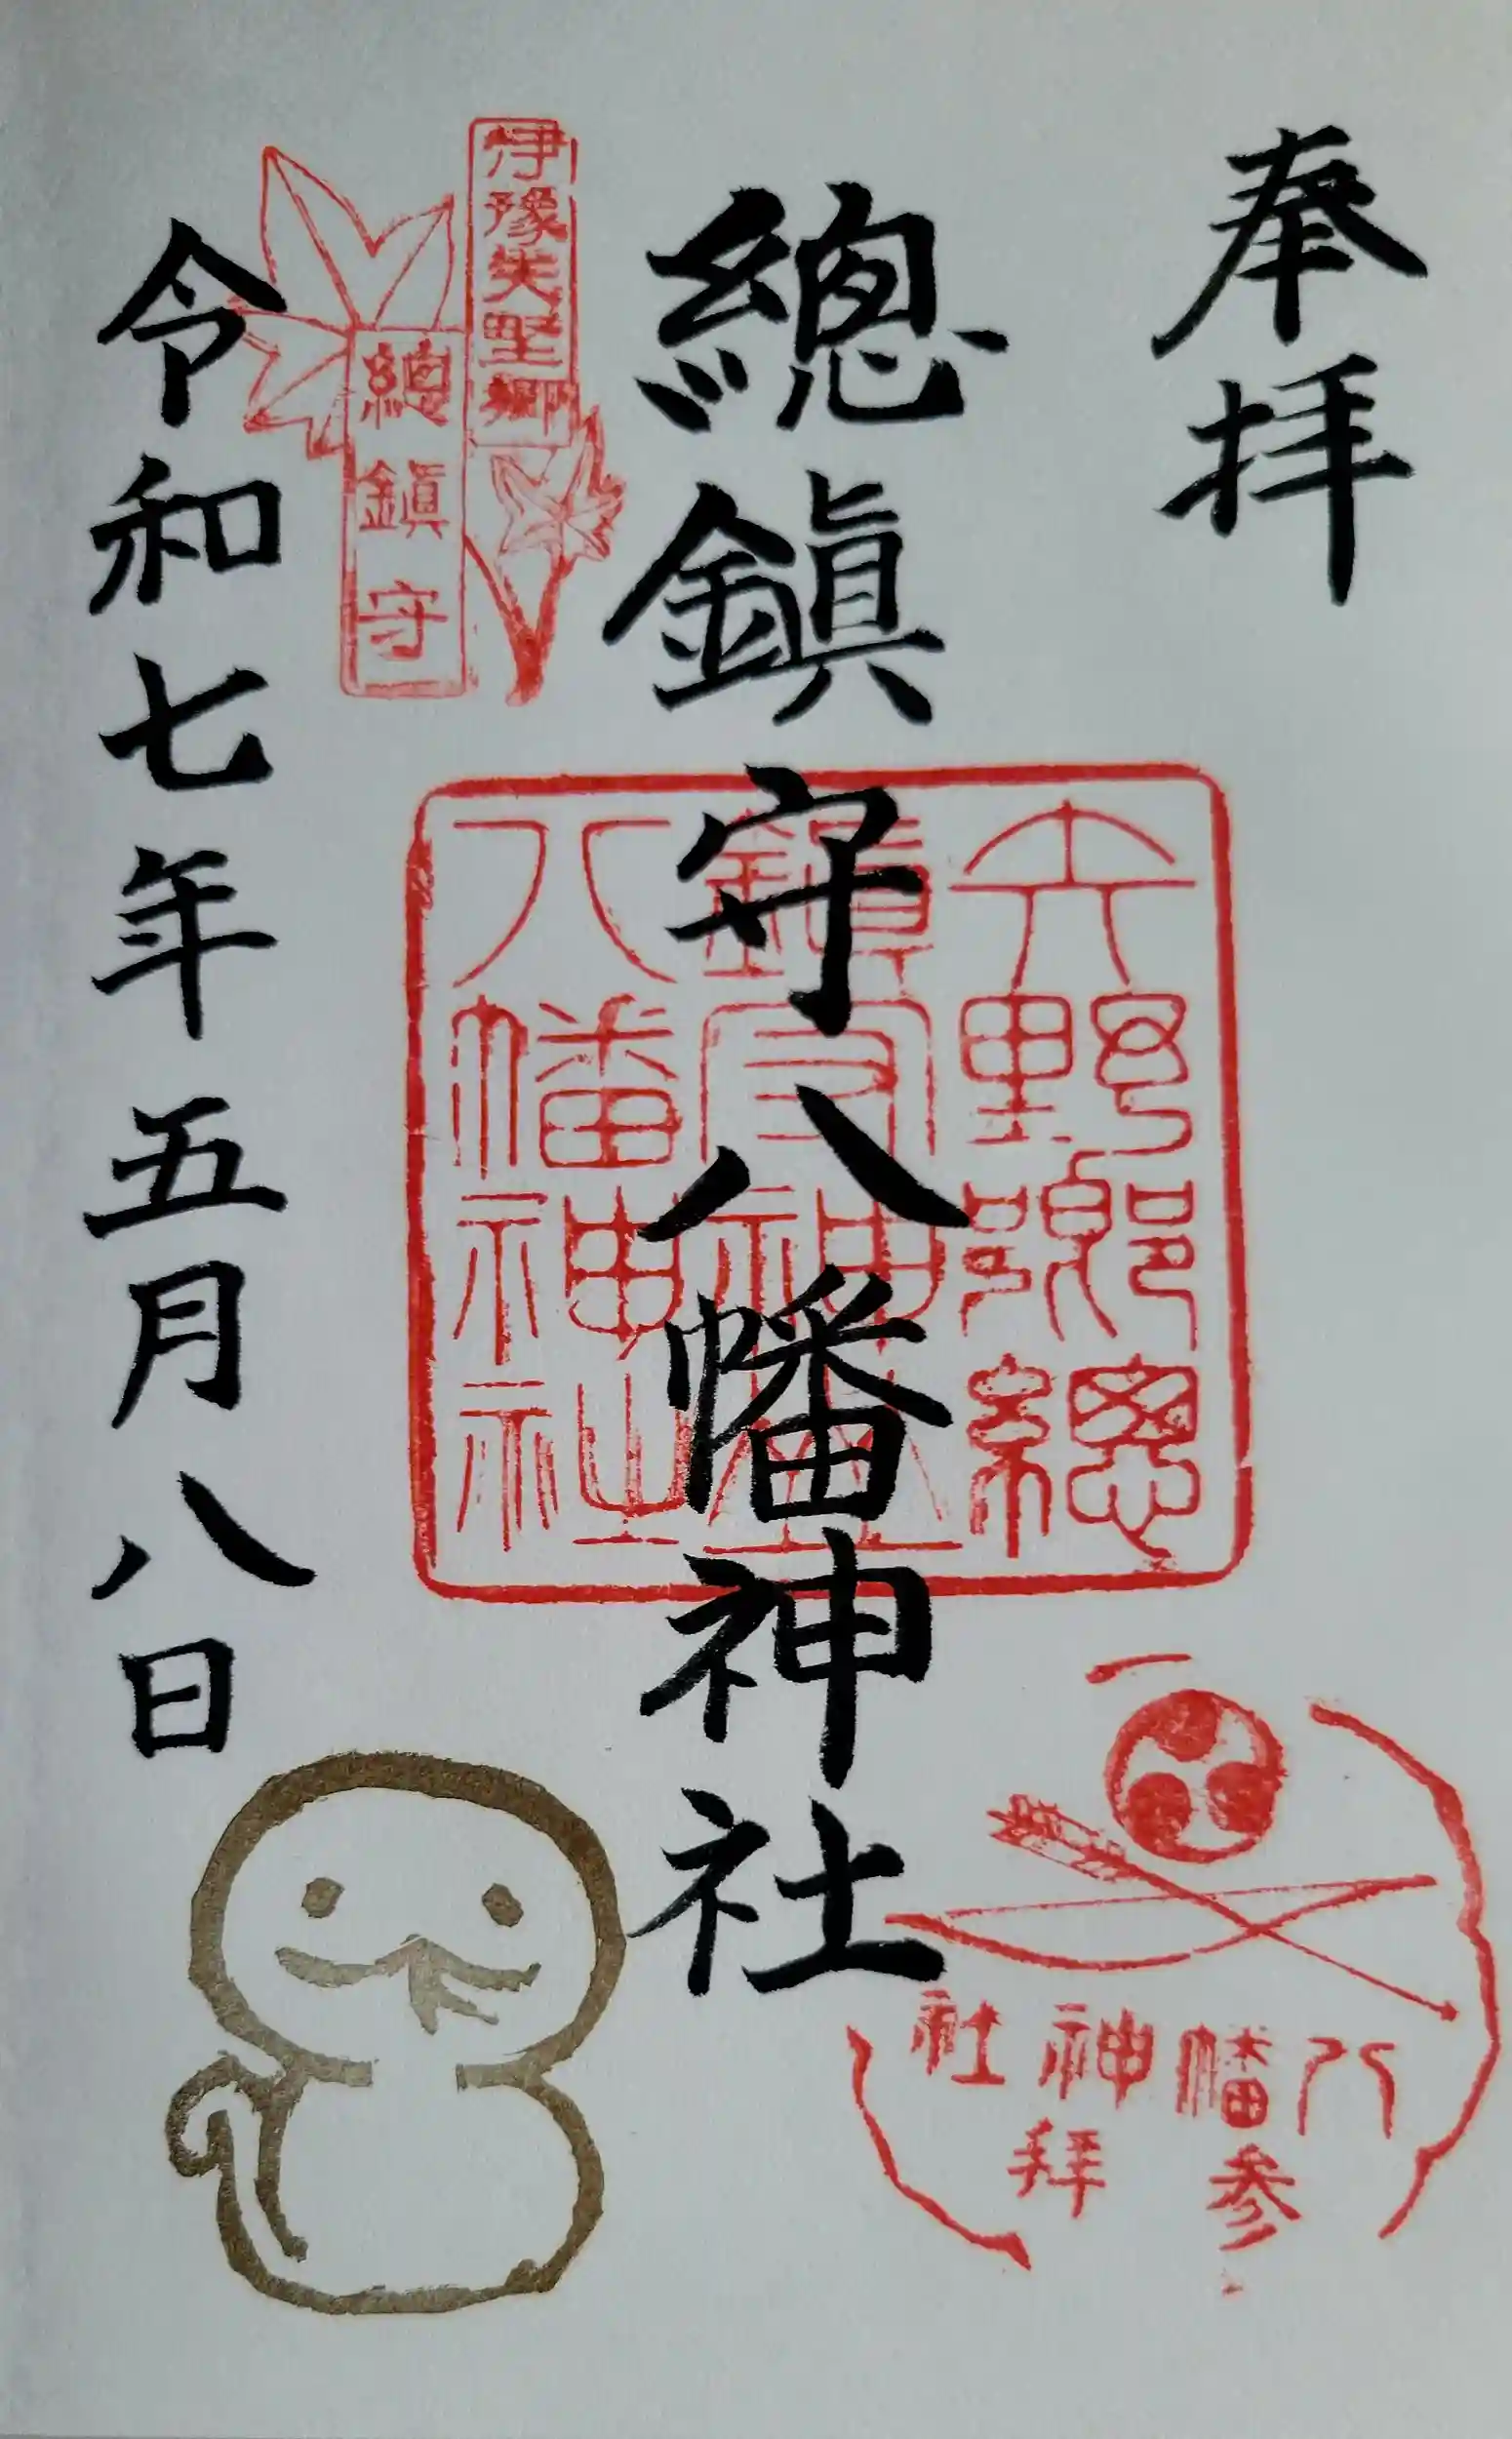 奉拝
總鎭守八幡神社
伊豫矢墅郷
總鎭守
令和七年五月八日
矢野郷總
鎭守神
八幡神社
八幡神社
参拜